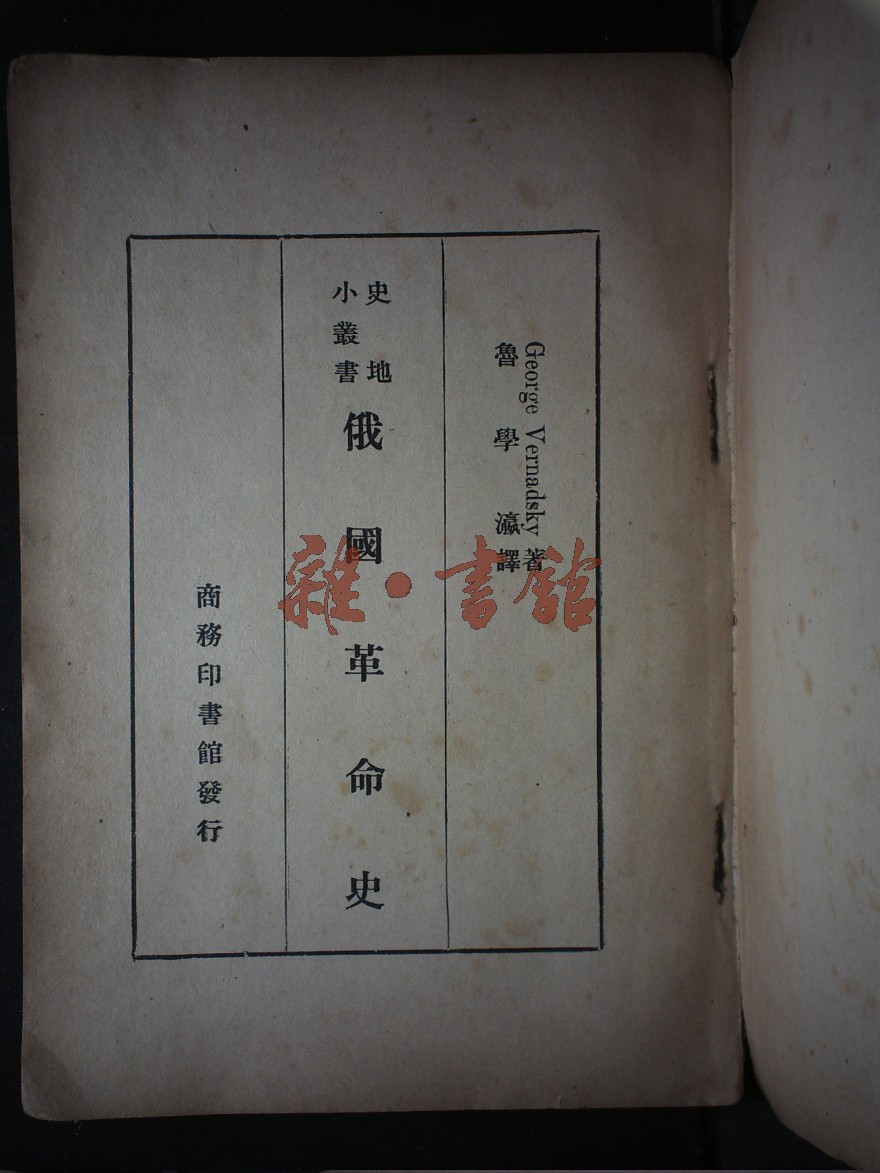 George Vernadsky 著
魯學瀛譯
史地
小叢書
俄國革命史
商務印書館發行
雜·書館